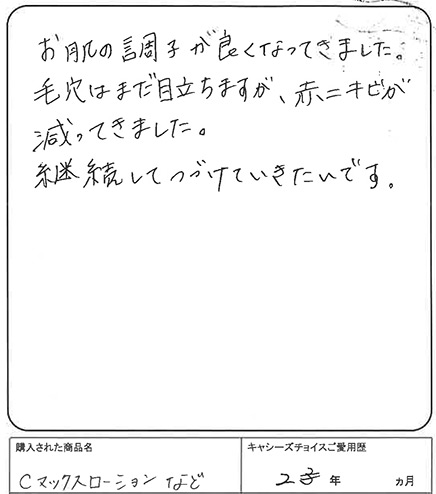 お肌の調子が良くなってきました。
毛穴はまだ目立ちますが、赤ニキビが
減ってきました。
継続してつづけていきたいです。
購入された商品名
キャシーズチョイスご愛用歴
Cマックスローション など
2 年 ヵ月